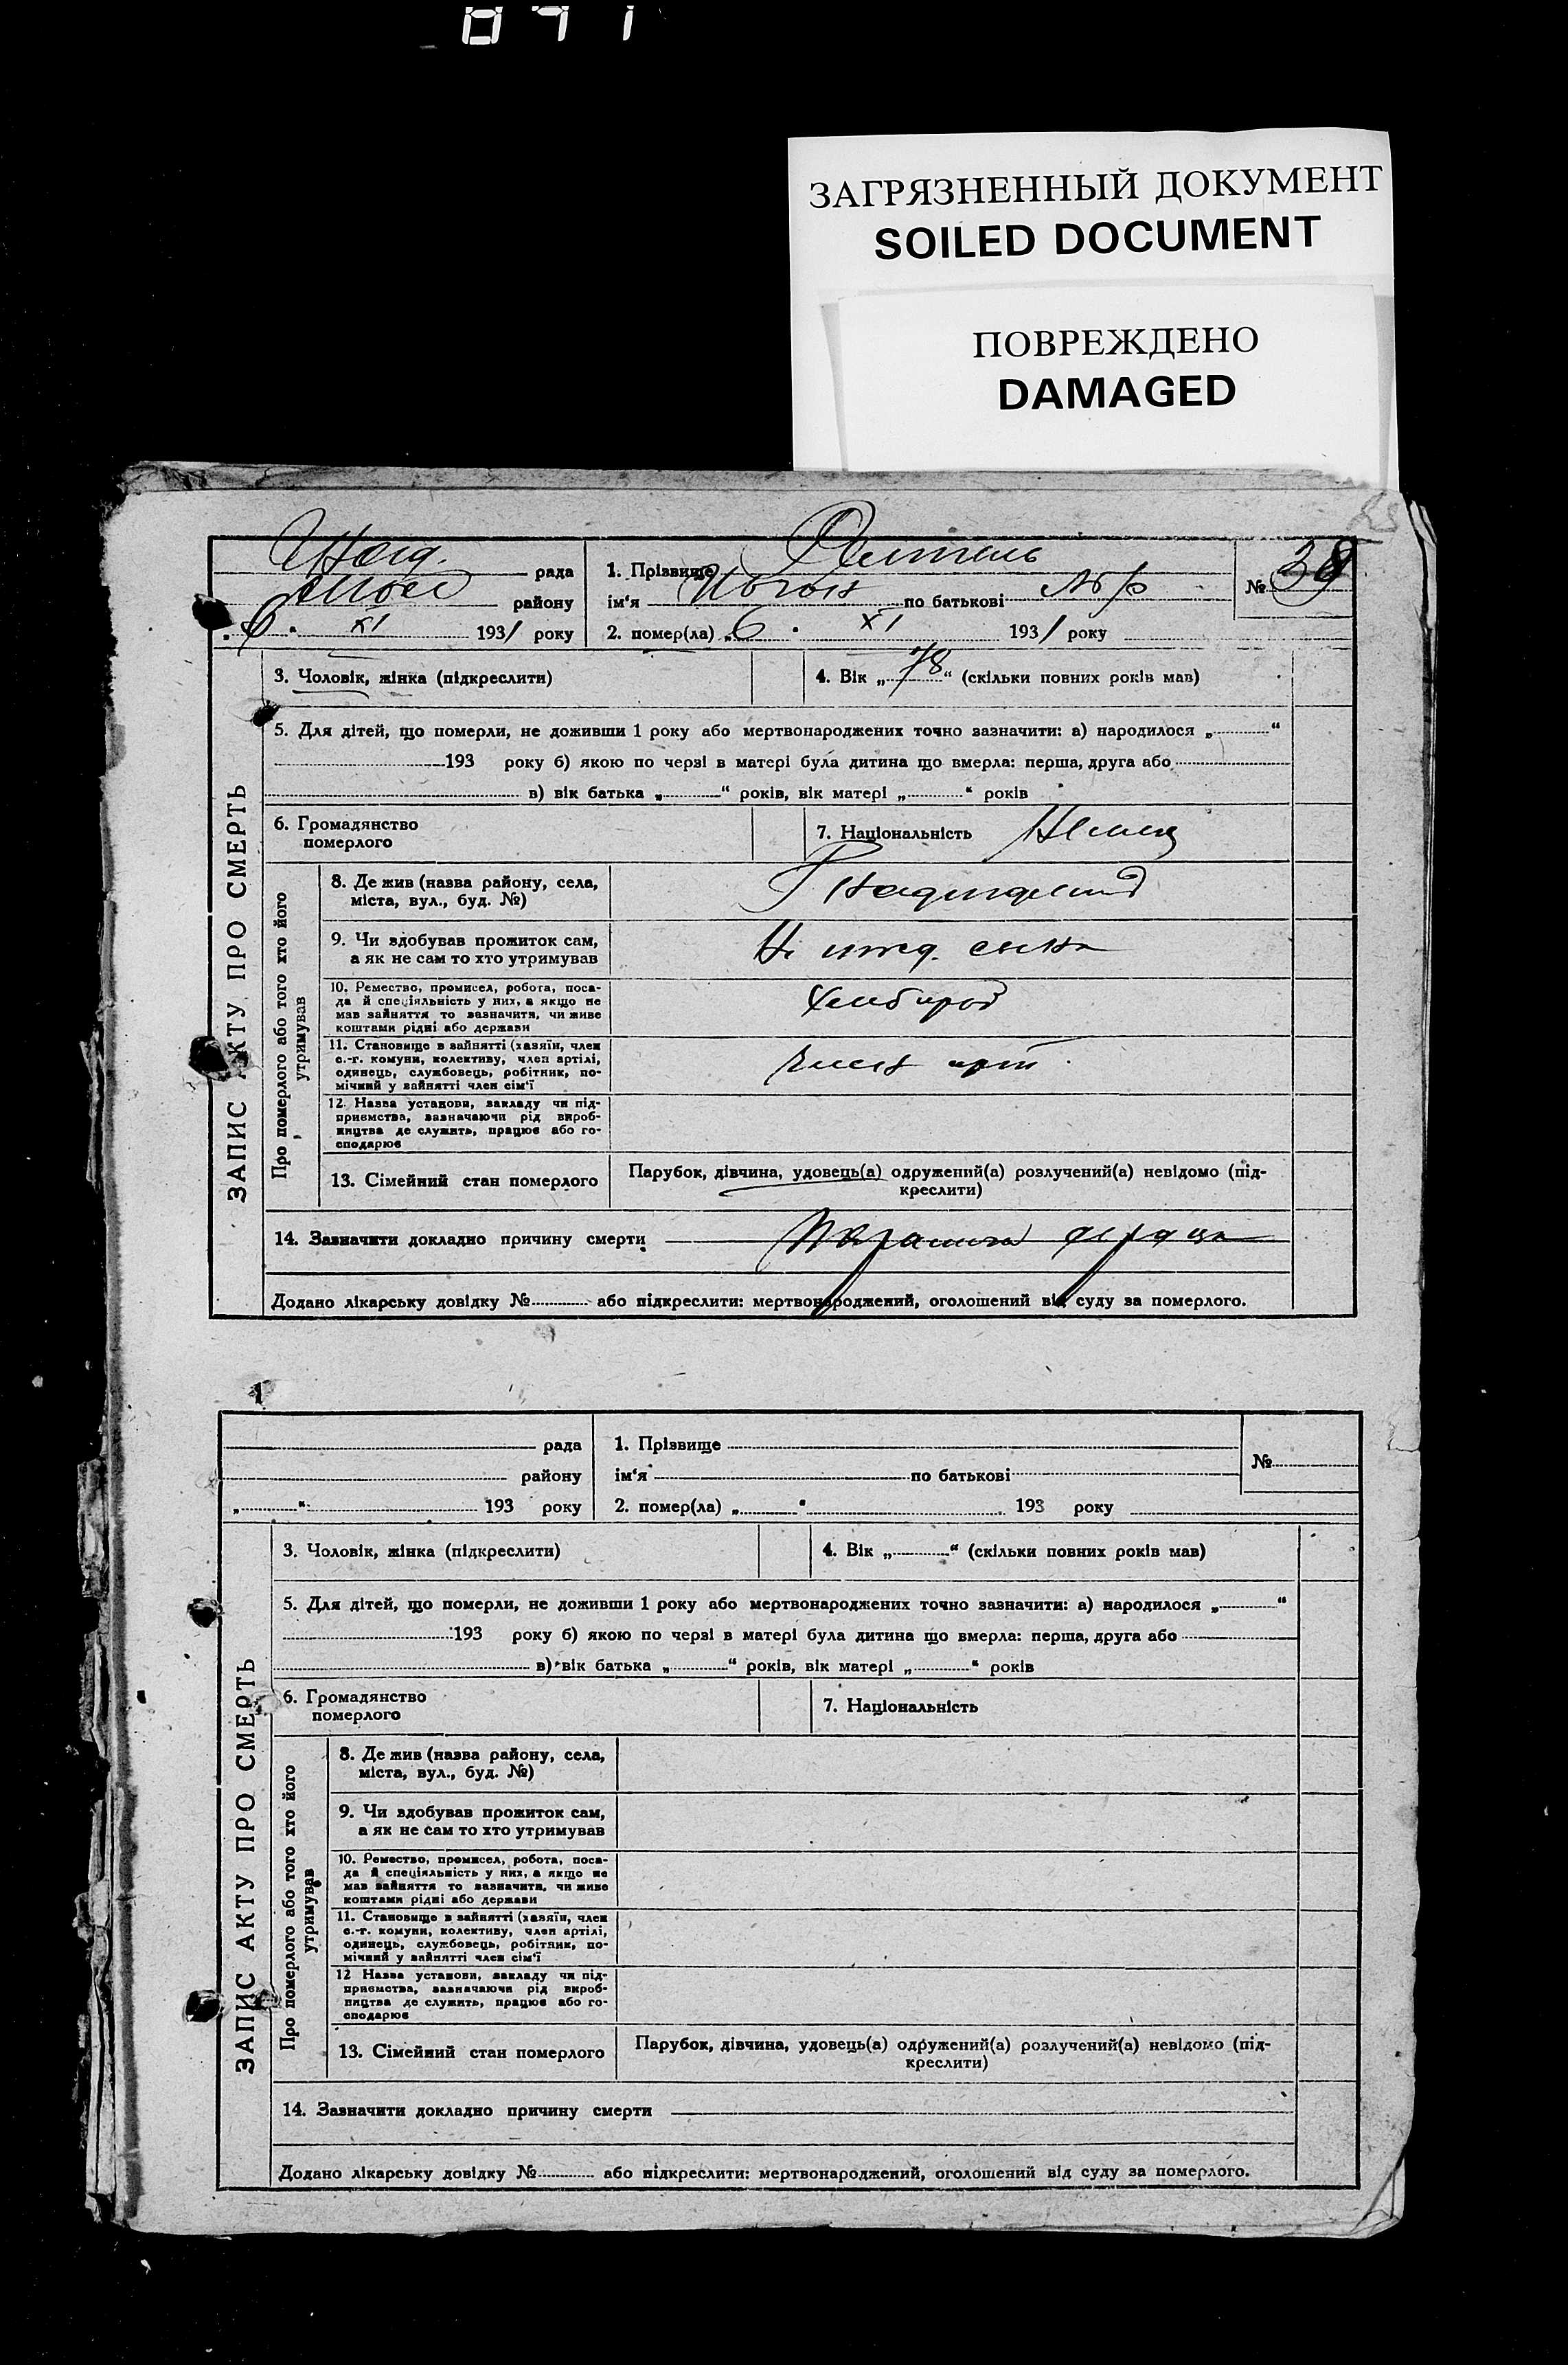 ЗАГРЯЗНЕННЫЙ ДОКУМЕНТ
SOILED DOCUMENT
ПОВРЕЖДЕНО
DAMAGED
ЗАПИС АКТУ ПРО СМЕРТЬ
рада
району
6 XI 1931 року
1. Прізвище
ім'я по батькові
№ 38
2. помер(ла) „6 " XI 1931 року
3. Чоловік, жінка (підкреслити)
4. Вік „78" (скільки повних років мав)
5. Для дітей, що померли, не доживши 1 року або мертвонароджених точно зазначити: а) народилося „ "
193 року б) якою по черзі в матері була дитина що вмерла: перша, друга або
в) вік батька „ " років, вік матері „ " років
6. Громадянство
померлого
7. Національність Немец
Про померлого або того хто його
утримував
8. Де жив (назва району, села,
міста, вул., буд. №)
9. Чи здобував прожиток сам,
а як не сам то хто утримував
Н ижд. сына
10. Ремество, промисел, робота, поса-
да й спеціяльність у них, а якщо не
мав зайняття то зазначити, чи живе
коштами рідні або держави
Хлебороб
11. Становище в зайнятті (хазяїн, член
с.-г. комуни, колективу, член артілі,
одинець, службовець, робітник, по-
мічний у зайнятті член сім'ї
член арт.
12. Назва установи, закладу чи під-
приємства, зазначаючи рід вироб-
ництва де служить, працює або го-
сподарює
13. Сімейний стан померлого
Парубок, дівчина, удовець(а) одружений(а) розлучений(а) невідомо (під-
креслити)
14. Зазначити докладно причину смерти Паралич сердца
Додано лікарську довідку № або підкреслити: мертвонароджений, оголошений від суду за померлого.
ЗАПИС АКТУ ПРО СМЕРТЬ
рада
району
„ " 193 року
1. Прізвище
ім'я по батькові
№
2. помер(ла) „ " 193 року
3. Чоловік, жінка (підкреслити)
4. Вік „ " (скільки повних років мав)
5. Для дітей, що померли, не доживши 1 року або мертвонароджених точно зазначити: а) народилося „ "
193 року б) якою по черзі в матері була дитина що вмерла: перша, друга або
в) вік батька „ " років, вік матері „ " років
6. Громадянство
померлого
7. Національність
Про померлого або того хто його
утримував
8. Де жив (назва району, села,
міста, вул., буд. №)
9. Чи здобував прожиток сам,
а як не сам то хто утримував
10. Ремество, промисел, робота, поса-
да й спеціяльність у них, а якщо не
мав зайняття то зазначити, чи живе
коштами рідні або держави
11. Становище в зайнятті (хазяїн, член
с.-г. комуни, колективу, член артілі,
одинець, службовець, робітник, по-
мічний у зайнятті член сім'ї
12 Назва установи, закладу чи під-
приємства, зазначаючи рід вироб-
ництва де служить, працює або го-
сподарює
13. Сімейний стан померлого
Парубок, дівчина, удовець(а) одружений(а) розлучений(а) невідомо (під-
креслити)
14. Зазначити докладно причину смерти
Додано лікарську довідку № або підкреслити: мертвонароджений, оголошений від суду за померлого.